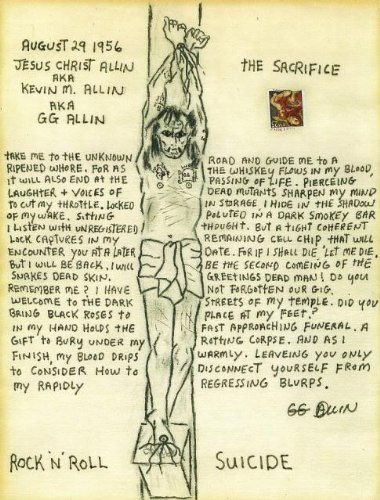 AUGUST 29 1956
JESUS CHRIST ALLIN
AKA
KEVIN M. ALLIN
AKA
GG ALLIN
THE SACRIFICE
TAKE ME TO THE UNKNOWN ROAD AND GUIDE ME TO A
RIPENED WHORE. FOR AS THE WHISKEY FLOWS IN MY BLOOD,
IT WILL ALSO END AT THE PASSING OF LIFE. PIERCEING
LAUGHTER + VOICES OF DEAD MUTANTS SHARPEN MY MIND
TO CUT MY THROTTLE. LOCKED IN STORAGE I HIDE IN THE SHADOW
OF MY WAKE. SITTING POLUTED IN A DARK SMOKEY BAR
I LISTEN WITH UNREGISTERED THOUGHT. BUT A TIGHT COHERENT
LOCK CAPTURES IN MY REMAINING CELL CHIP THAT WILL
ENCOUNTER YOU AT A LATER DATE. FOR IF I SHALL DIE, LET ME DIE,
BUT I WILL BE BACK. I WILL BE THE SECOND COMEING OF THE
SNAKES DEAD SKIN. GREETINGS DEAD MAN! DO YOU
REMEMBER ME? I HAVE NOT FORGOTTEN OUR GIG.
WELCOME TO THE DARK STREETS OF MY TEMPLE. DID YOU
BRING BLACK ROSES TO PLACE AT MY FEET?
IN MY HAND HOLDS THE FAST APPROACHING FUNERAL. A
GIFT TO BURY UNDER MY ROTTING CORPSE. AND AS I
FINISH, MY BLOOD DRIPS WARMLY. LEAVEING YOU ONLY
TO CONSIDER HOW TO DISCONNECT YOURSELF FROM
MY RAPIDLY REGRESSING BLURPS.
GG ALLIN
ROCK 'N' ROLL SUICIDE